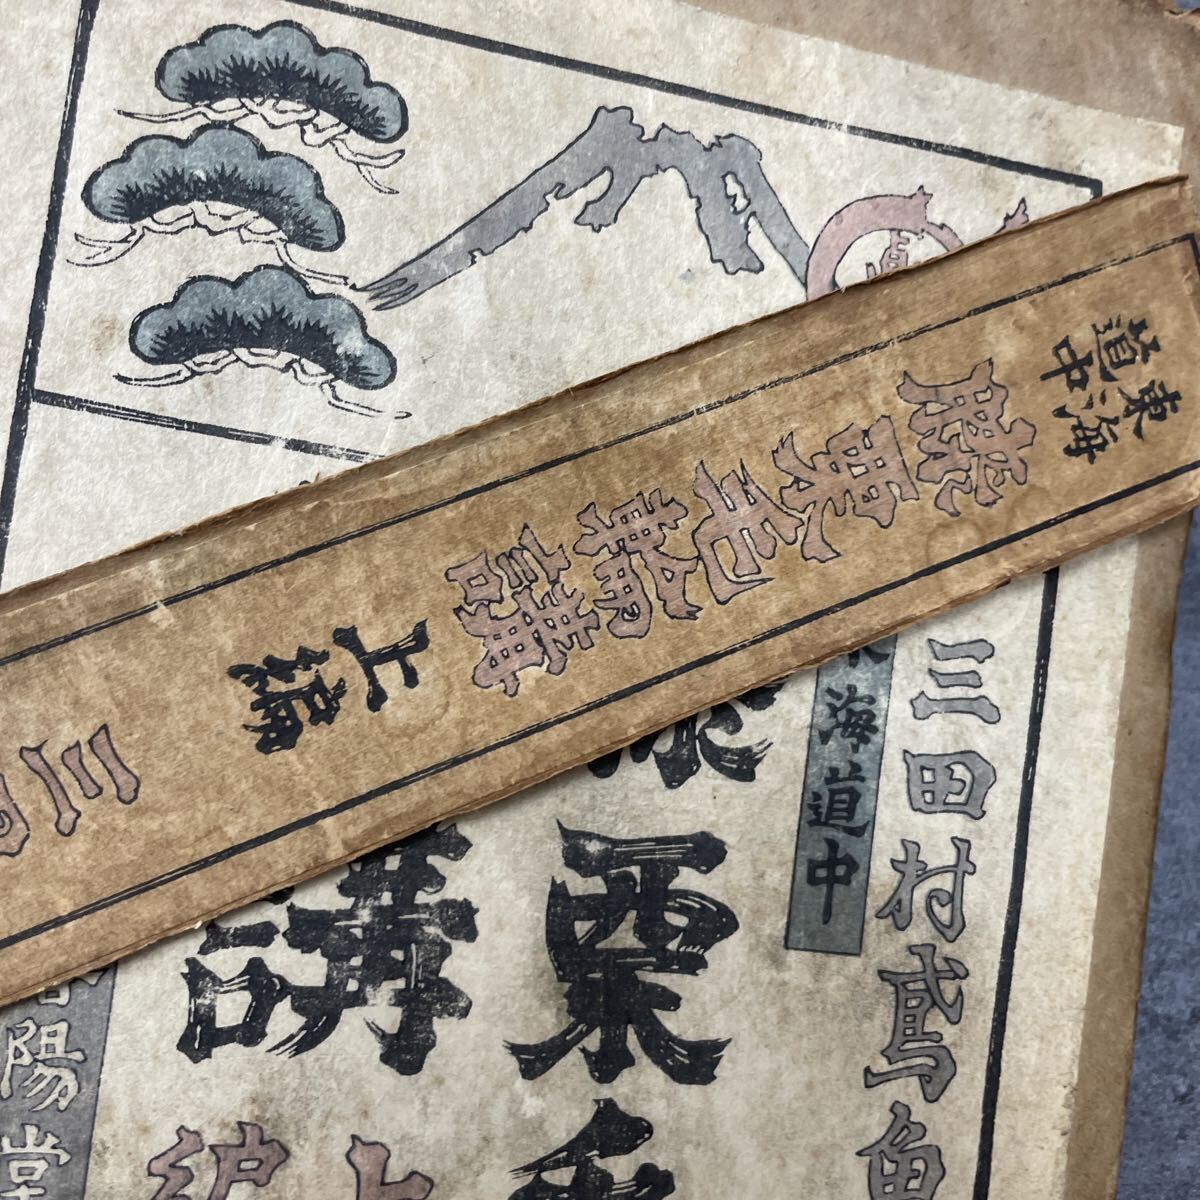 東海
道中
膝栗毛輪講
上編
三田
三田村鳶魚
海道中
栗毛
講
上
編
陽堂